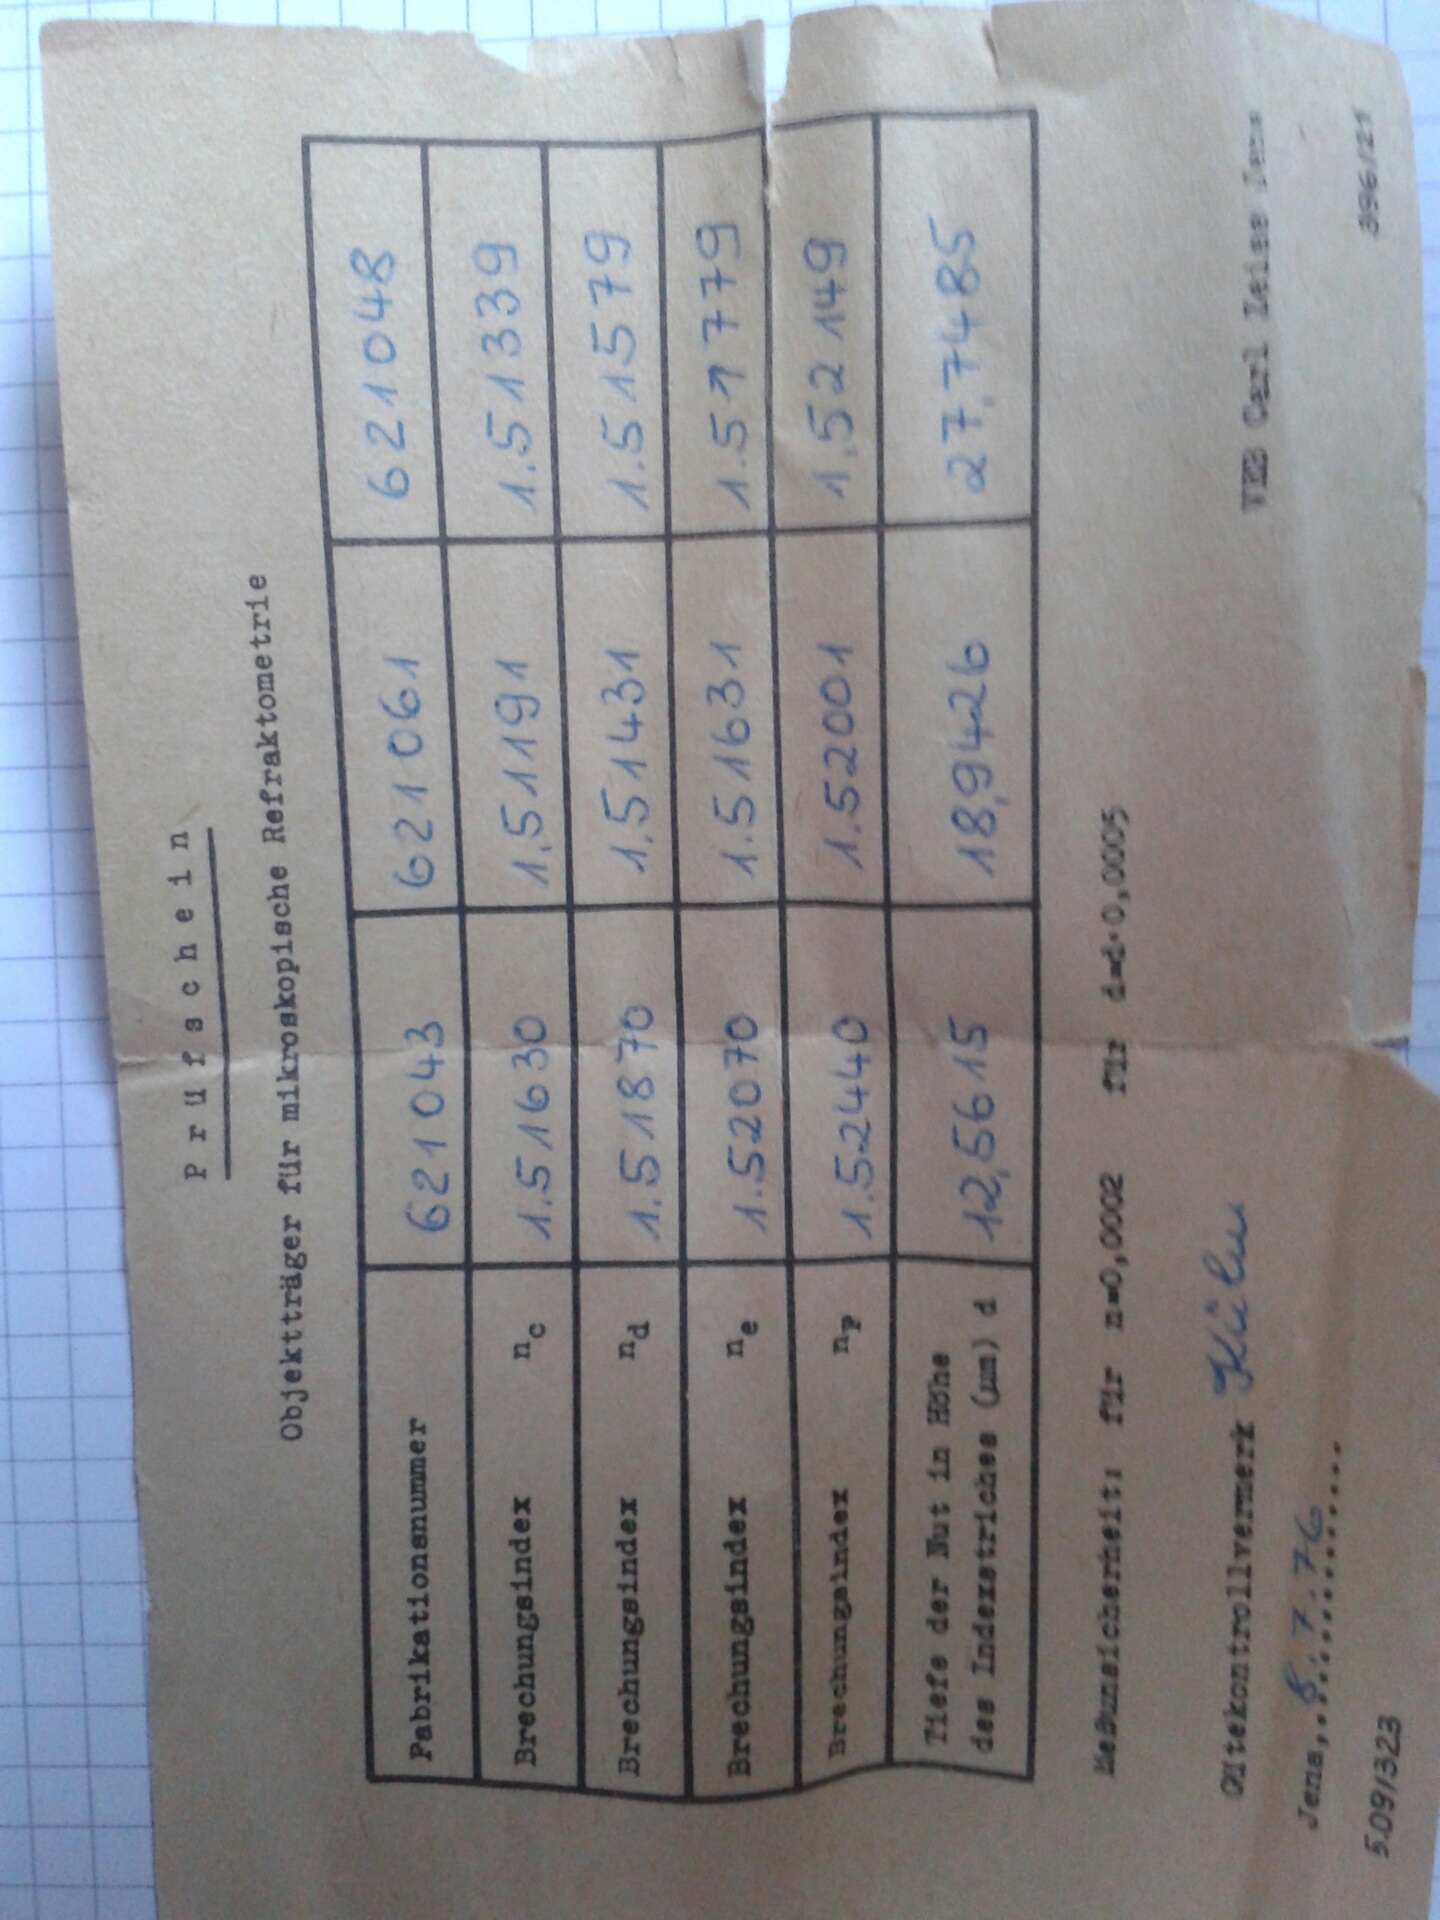 Prüfschein
Objektträger für mikroskopische Refraktometrie
Fabrikationsnummer 621043 621061 621048
Brechungsindex nc 1.51630 1,51191 1.51339
Brechungsindex nd 1.51870 1,51431 1.51579
Brechungsindex ne 1.52070 1.51631 1.51779
Brechungsindex nF 1.52440 1.52001 1,52149
Tiefe der Nut in Höhe
des Indexstriches (µm) d 12,5615 18,9426 27,7485
Meßunsicherheit: für n=0,0002 für d=d·0,0005
Gütekontrollvermerk
VEB Carl Zeiss Jena
Jena, 7.76
5.091323
396/21